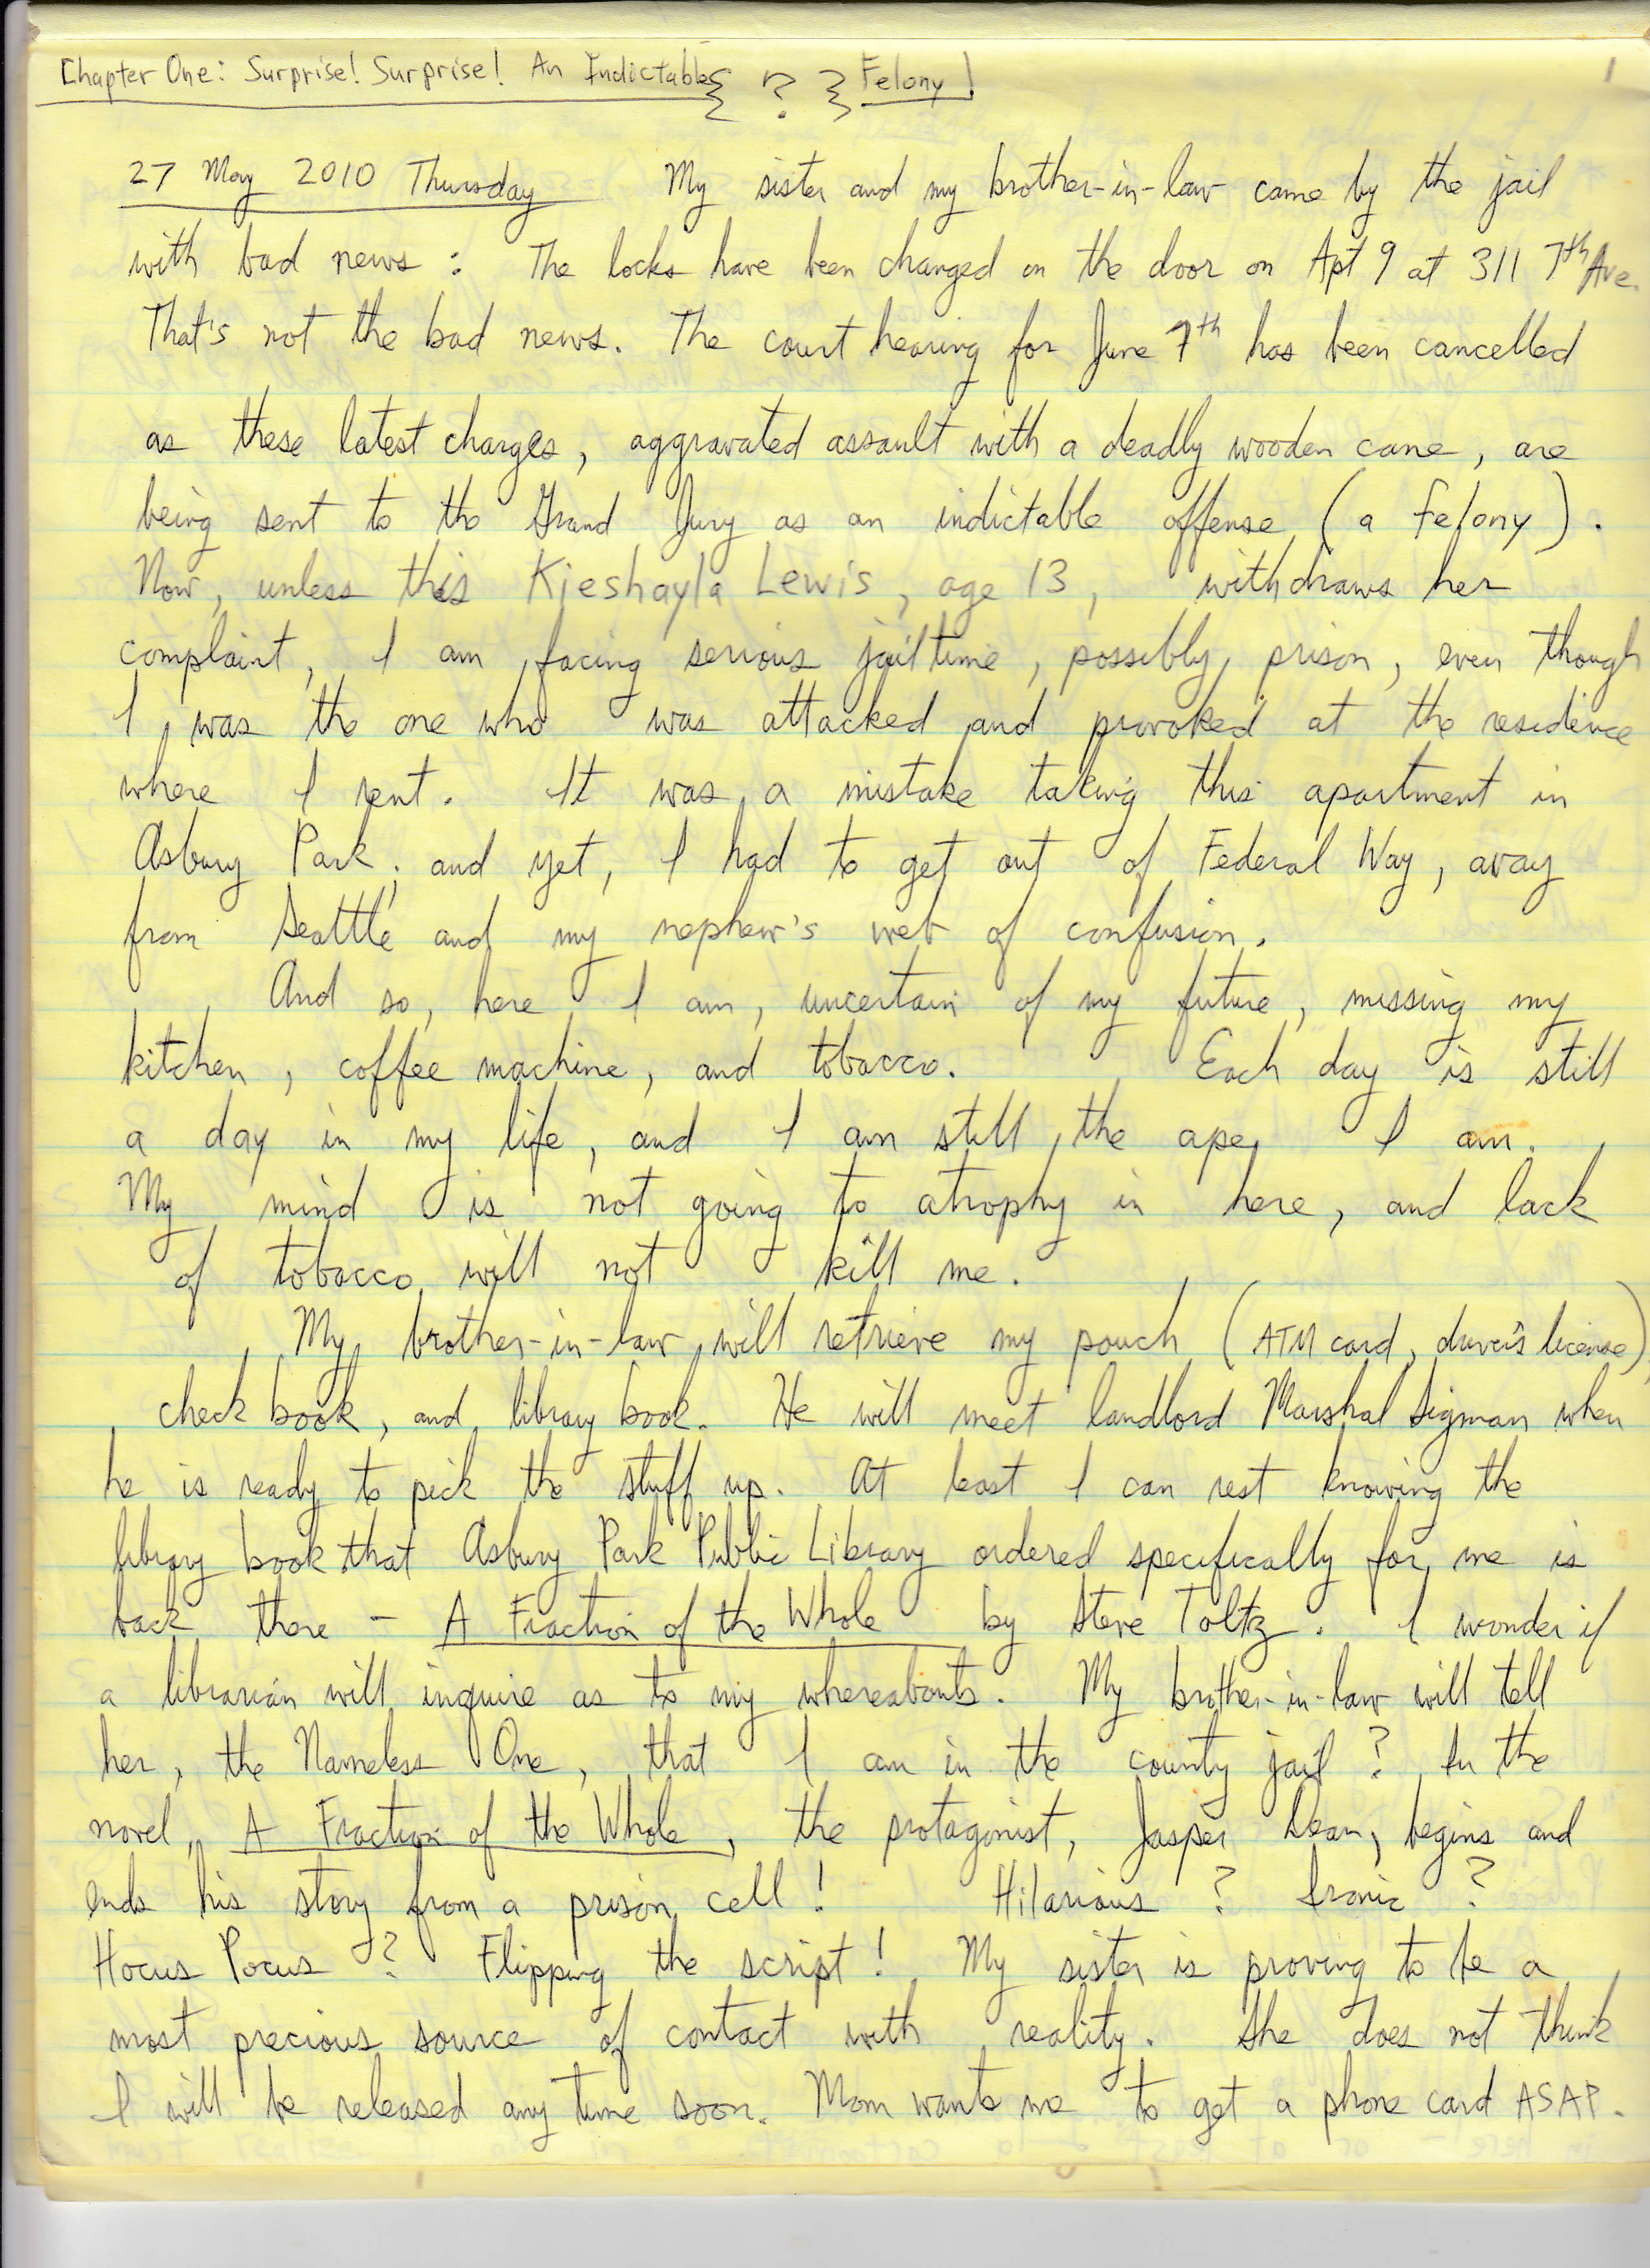 Chapter One: Surprise! Surprise! An Indictable { ? } Felony! 1
27 May 2010 Thursday My sister and my brother-in-law came by the jail
with bad news: The locks have been changed on the door on Apt 9 at 311 7th Ave.
That's not the bad news. The court hearing for June 7th has been cancelled
as these latest charges, aggravated assault with a deadly wooden cane, are
being sent to the Grand Jury as an indictable offense (a felony).
Now, unless this Kieshayla Lewis, age 13, withdraws her
complaint, I am facing serious jailtime, possibly, prison, even though
I was the one who was attacked and provoked at the residence
where I rent. It was a mistake taking this apartment in
Asbury Park; and yet, I had to get out of Federal Way, away
from Seattle and my nephew's web of confusion.
And so, here I am, uncertain of my future, missing my
kitchen, coffee machine, and tobacco. Each day is still
a day in my life, and I am still the ape I am.
My mind is not going to atrophy in here, and lack
of tobacco will not kill me.
My brother-in-law will retrieve my pouch (ATM card, driver's license),
check book, and library book. He will meet landlord Marshal Sigman when
he is ready to pick the stuff up. At least I can rest knowing the
library book that Asbury Park Public Library ordered specifically for me is
back there - A Fraction of the Whole by Steve Toltz. I wonder if
a librarian will inquire as to my whereabouts. My brother-in-law will tell
her, the Nameless One, that I am in the county jail? In the
novel, A Fraction of the Whole, the protagonist, Jasper Dean, begins and
ends his story from a prison cell! Hilarious? Ironic?
Hocus Pocus? Flipping the script! My sister is proving to be a
most precious source of contact with reality. She does not think
I will be released any time soon. Mom wants me to get a phone card ASAP.